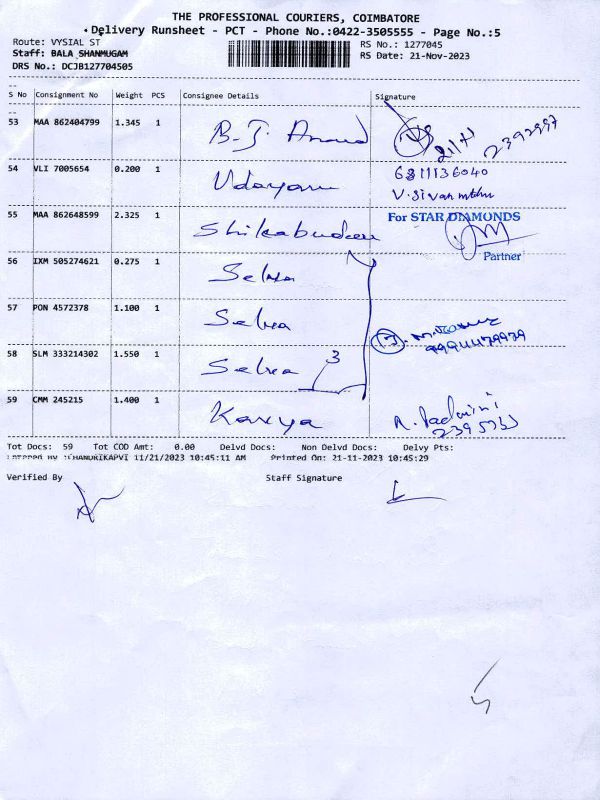 THE PROFESSIONAL COURIERS, COIMBATORE
Delivery Runsheet - PCT - Phone No.:0422-3505555 - Page No.:5
Route: VYSIAL ST
RS No.: 1277045
Staff: BALA SHANMUGAM
RS Date: 21-Nov-2023
DRS No.: DCJB127704505
S No Consignment No Weight PCS Consignee Details Signature
53 MAA 862404799 1.345 1 B-J. Anand 2392997
54 VLI 7005654 0.200 1 Udayam 6311136040
55 MAA 862648599 2.325 1 For STAR DIAMONDS
Partner
56 IXM 505274621 0.275 1 Selva
57 PON 4572378 1.100 1 Selva
58 SLM 333214302 1.550 1 Selva 3
59 CMM 245215 1.400 1 Kavya
Tot Docs: 59 Tot COD Amt: 0.00 Delvd Docs: Non Delvd Docs: Delvy Pts:
Entered By :CHANDRIKAPVI 11/21/2023 10:45:11 AM Printed On: 21-11-2023 10:45:29
Verified By Staff Signature